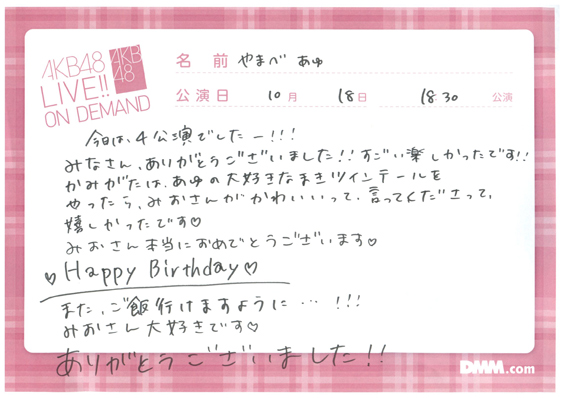 AKB48
LIVE!!
ON DEMAND
AKB
48
名前 やまべ あゆ
公演日 10月 18日 18:30 公演
今日は、4公演でしたー!!!
みなさん、ありがとうございました!!すごい楽しかったです!!
かみがたは、あゆの大好きなまきツインテールを
やったら、みおさんがかわいいって、言ってくださって、
嬉しかったです♡
みおさん本当におめでとうございます♡
♡Happy Birthday♡
また、ご飯行けますように…!!!
みおさん大好きです♡
ありがとうございました!!
DMM.com